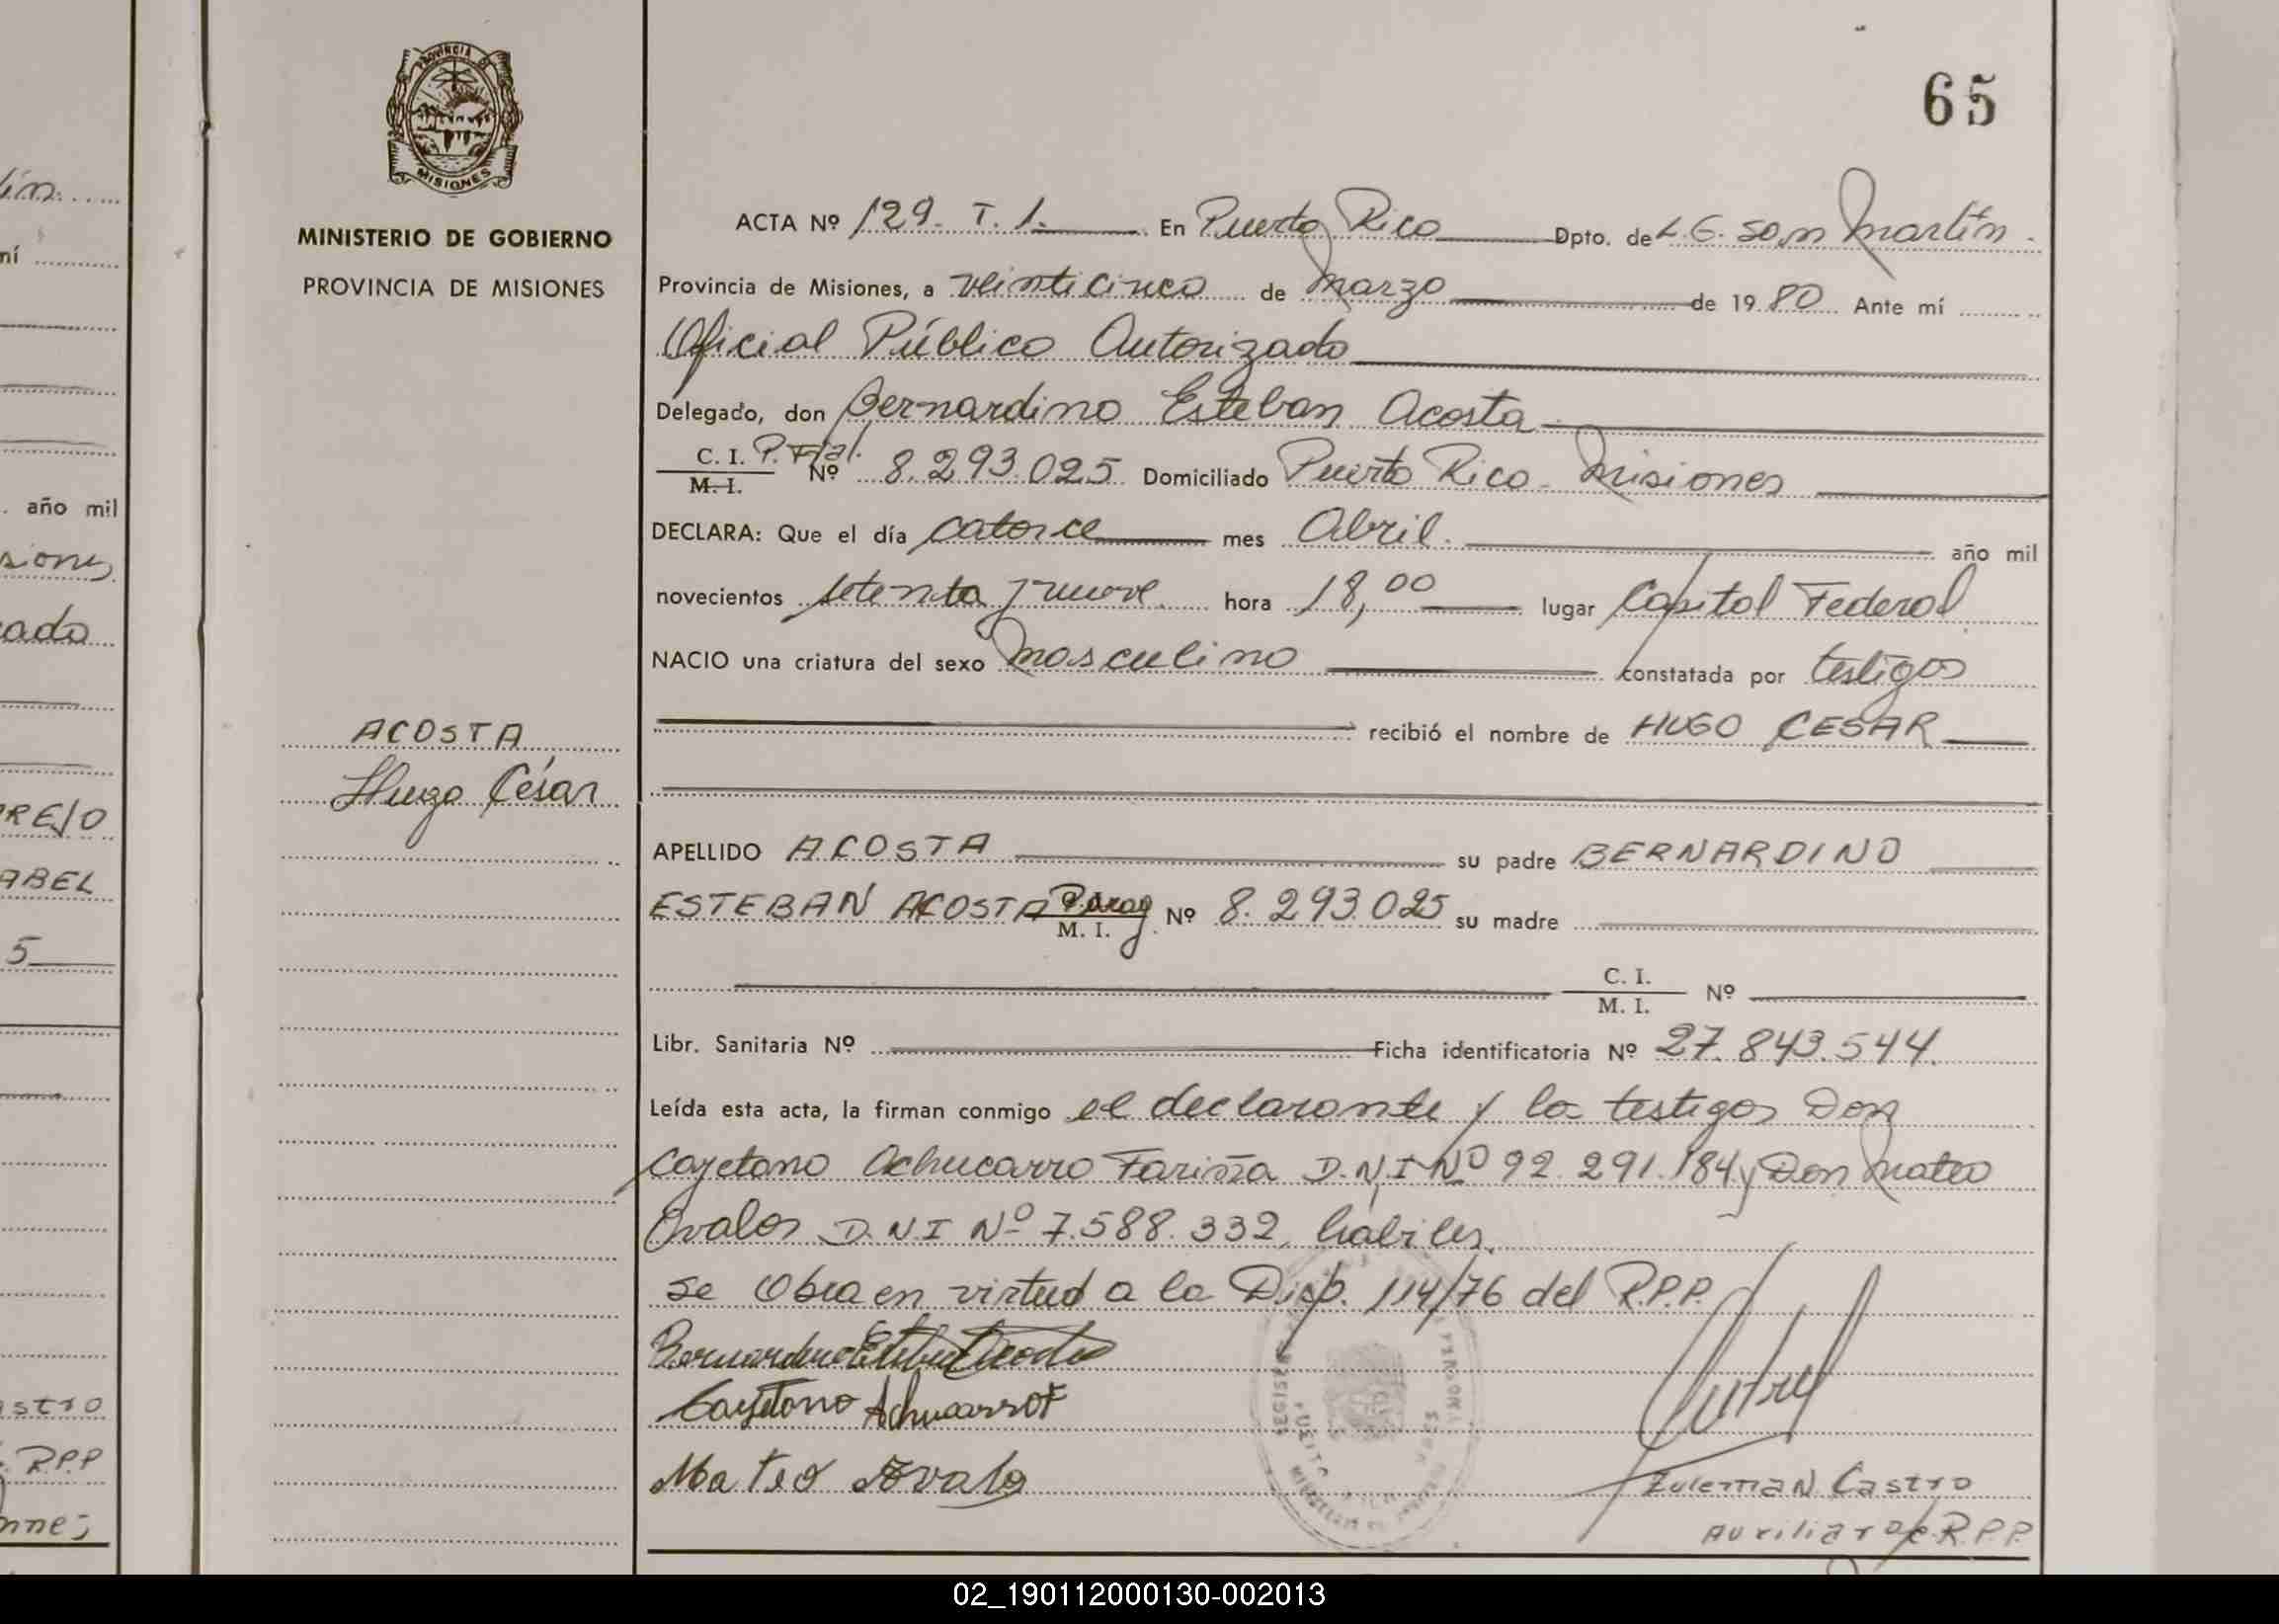 65
PROVINCIA DE
MISIONES
MINISTERIO DE GOBIERNO
PROVINCIA DE MISIONES
ACOSTA
Hugo César
ACTA Nº 129. T. 1. En Puerto Rico Dpto. de L. G. San Martín.
Provincia de Misiones, a veinticinco de Marzo de 1980 Ante mí
Oficial Público Autorizado
Delegado, don Bernardino Esteban Acosta
C. I. P. M. I. Nº 8.293.025 Domiciliado Puerto Rico - Misiones
DECLARA: Que el día catorce mes Abril. año mil
novecientos setenta y nueve hora 18,00 lugar Capital Federal
NACIO una criatura del sexo Masculino constatada por testigos
recibió el nombre de HUGO CESAR
APELLIDO ACOSTA su padre BERNARDINO
ESTEBAN ACOSTA Parag M. I. Nº 8.293.025 su madre
C. I. M. I. Nº
Libr. Sanitaria Nº Ficha identificatoria Nº 27.843.544.
Leída esta acta, la firman conmigo el declarante y los testigos Don
Cayetano Achucarro Fariña D.N.I Nº 92.291.184 y Don Mateo
Ovalos D.N.I Nº 7.588.332, hábiles.
se Obra en virtud a la Disp. 114/76 del R.P.P.
Bernardino Esteban Acosta
Cayetano Achucarro F
Mateo Avalo
Zulema N Castro
Auxiliar de R.P.P.
ín.
ní
año mil
siones
ado
REJO
ABEL
5
astro
R.P.P
02_190112000130-002013